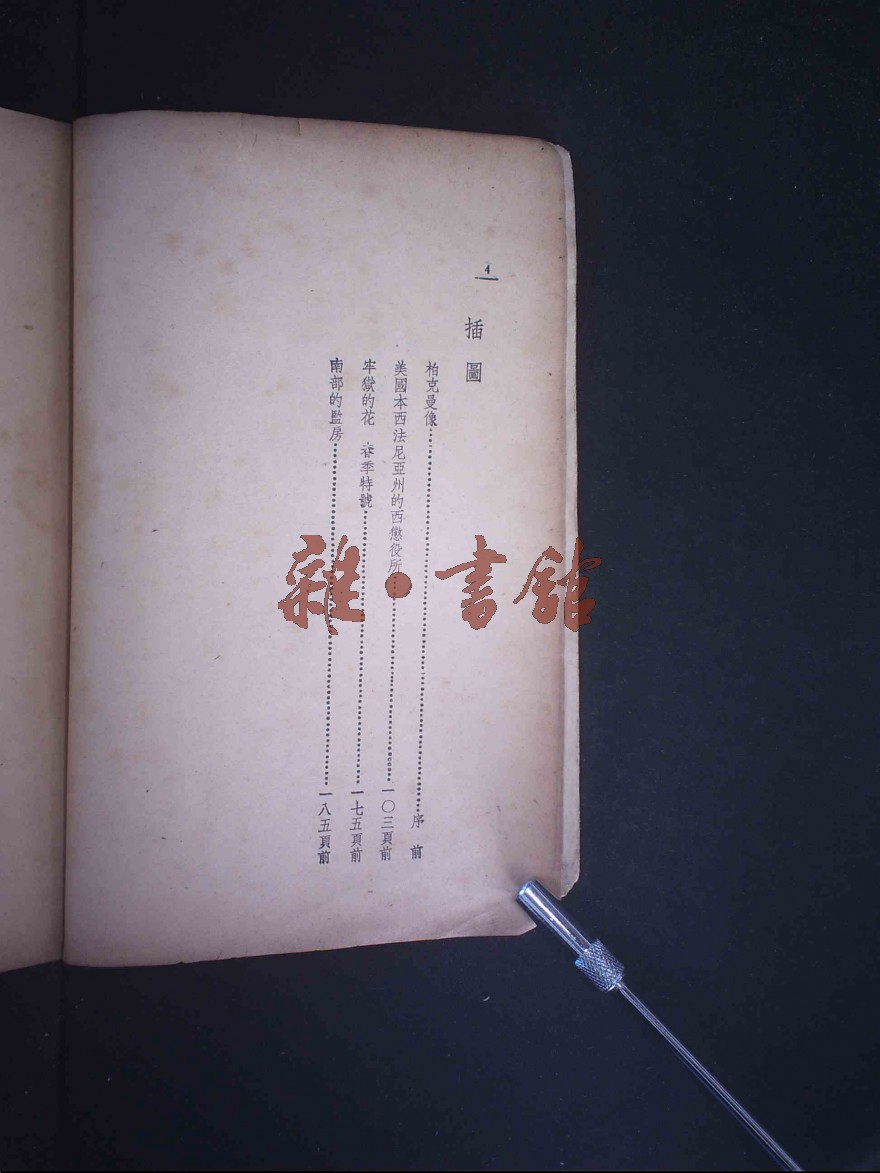 4
插圖
柏克曼像……序前
美國本西法尼亞州的西懲役所……一〇三頁前
牢獄的花 春季特號……一七五頁前
南部的監房……一八五頁前
雜·書館